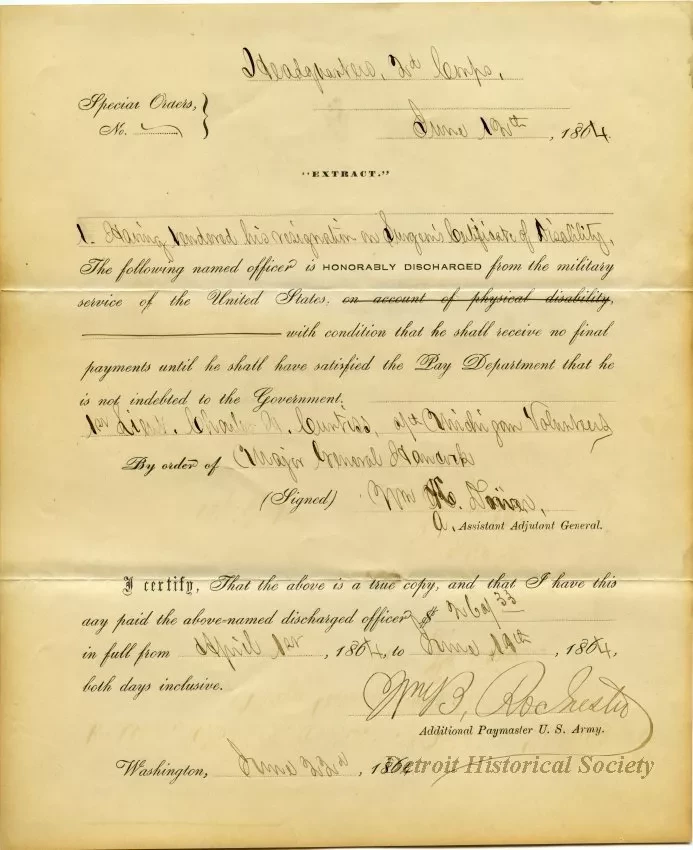 Headquarters, 2d Corps,
Special Orders,
No.
June 12th, 1864.
"EXTRACT."
1. Having tendered his resignation on Surgeon's Certificate of Disability,
The following named officer is HONORABLY DISCHARGED from the military
service of the United States, on account of physical disability,
with condition that he shall receive no final
payments until he shall have satisfied the Pay Department that he
is not indebted to the Government.
1st Lieut. Charles Curtiss, Michigan Volunteers
By order of Major General Hancock
(Signed) Wm
a, Assistant Adjutant General.
I certify, That the above is a true copy, and that I have this
day paid the above-named discharged officer
in full from April 1st, 1864, to June 14th, 1864,
both days inclusive.
Wm B. Rochester
Additional Paymaster U. S. Army.
Washington, June 22d, 1864
Detroit Historical Society